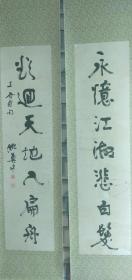 永憶江湖歸白髮
欲迴天地入扁舟